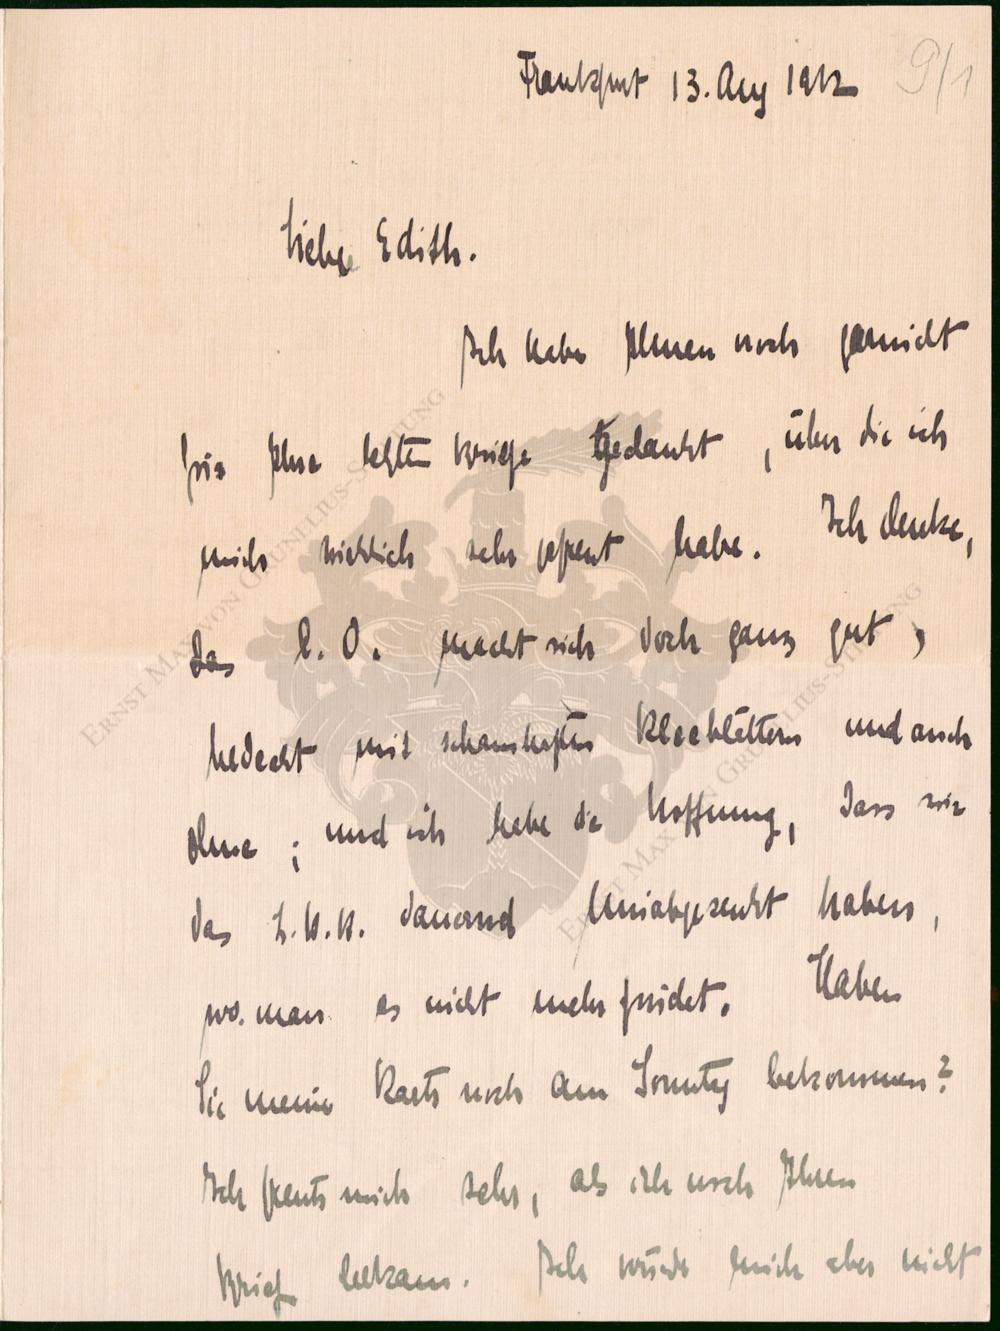 Frankfurt 13. Aug 1912
9/1
Liebe Edith.
Ich habe Ihnen noch garnicht
für Ihre letzten Briefe gedankt, über die ich
mich wirklich sehr gefreut habe. Ich denke,
das E. O. macht sich doch ganz gut,
bedeckt mit Kleeblättern und auch
ohne; und ich habe die Hoffnung, dass wir
das dauernd haben,
wo man es nicht mehr findet. Haben
Sie meine Karte noch am Sonntag bekommen?
Ich freute mich sehr, als ich noch Ihren
Brief bekam. Ich würde mich aber nicht
ERNST MAX VON GRUNELIUS-STIFTUNG
ERNST MAX VON GRUNELIUS-STIFTUNG